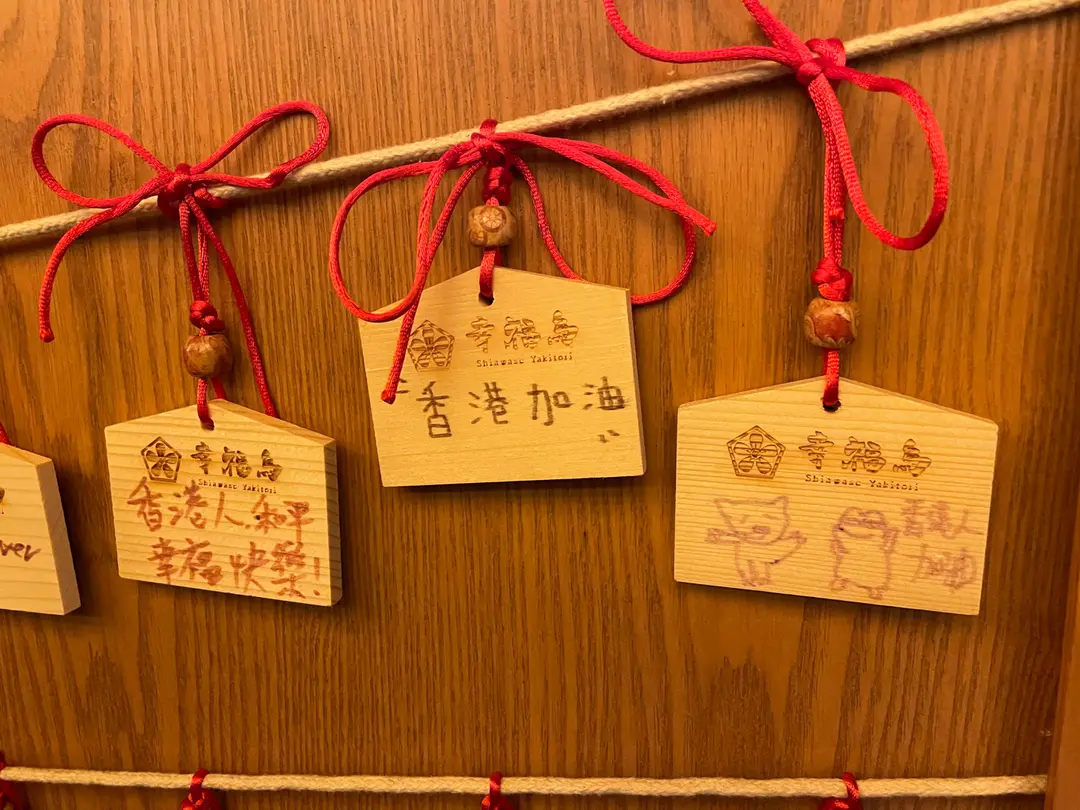 ver
幸福鳥
Shiawase Yakitori
香港人,和平
幸福快樂!
幸福鳥
Shiawase Yakitori
香港加油
幸福鳥
Shiawase Yakitori
香港人
加油